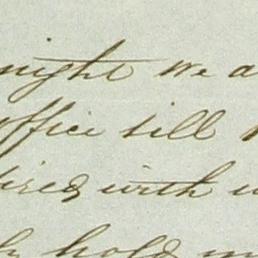 night we a
office till
tired with
hold